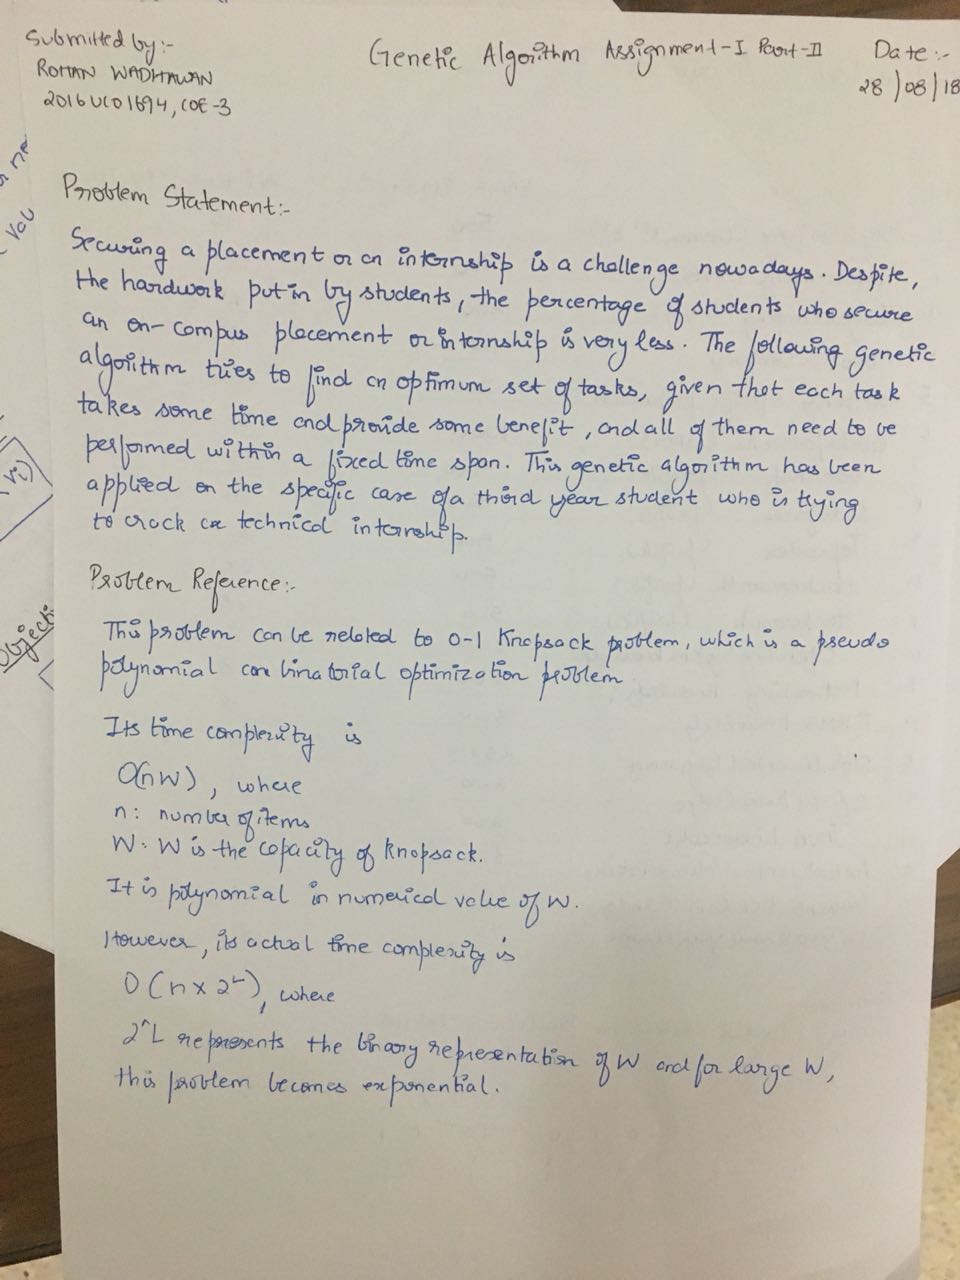 Submitted by:-
ROHAN WADHAWAN
2016UCO1694, COE-3
Genetic Algorithm Assignment-I Part-II
Date:-
28/08/18
Problem Statement:-
Securing a placement or an internship is a challenge nowadays. Despite,
the hardwork put in by students, the percentage of students who secure
an on-campus placement or internship is very less. The following genetic
algorithm tries to find an optimum set of tasks, given that each task
takes some time and provide some benefit, and all of them need to be
performed within a fixed time span. This genetic algorithm has been
applied on the specific case of a third year student who is trying
to crack a technical internship.
Problem Reference:-
This problem can be related to 0-1 Knapsack problem, which is a pseudo
polynomial combinatorial optimization problem
Its time complexity is
O(nW), where
n: number of items
W: W is the capacity of knapsack.
It is polynomial in numerical value of W.
However, its actual time complexity is
O(n x 2^L), where
2^L represents the binary representation of W and for large W,
this problem becomes exponential.
Vi)
Objecti